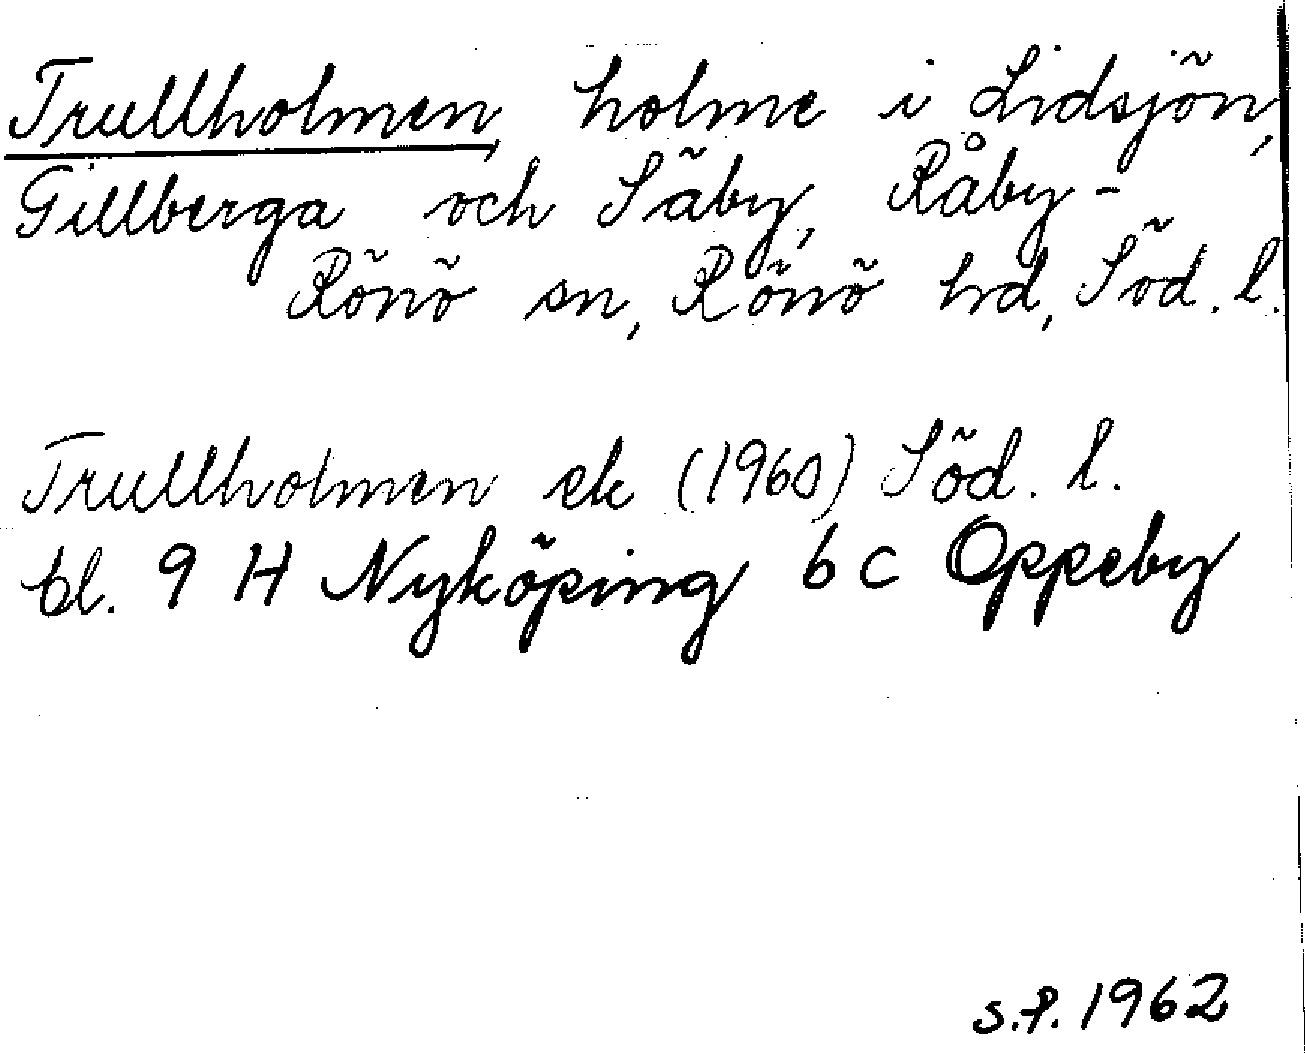 Trullholmen, holme i Lidsjön,
Gillberga och Säby, Råby-
Rönö sn, Rönö hd, Söd. l.
Trullholmen ek (1960) Söd. l.
bl. 9 H Nyköping 6 c Oppeby
S.P. 1962